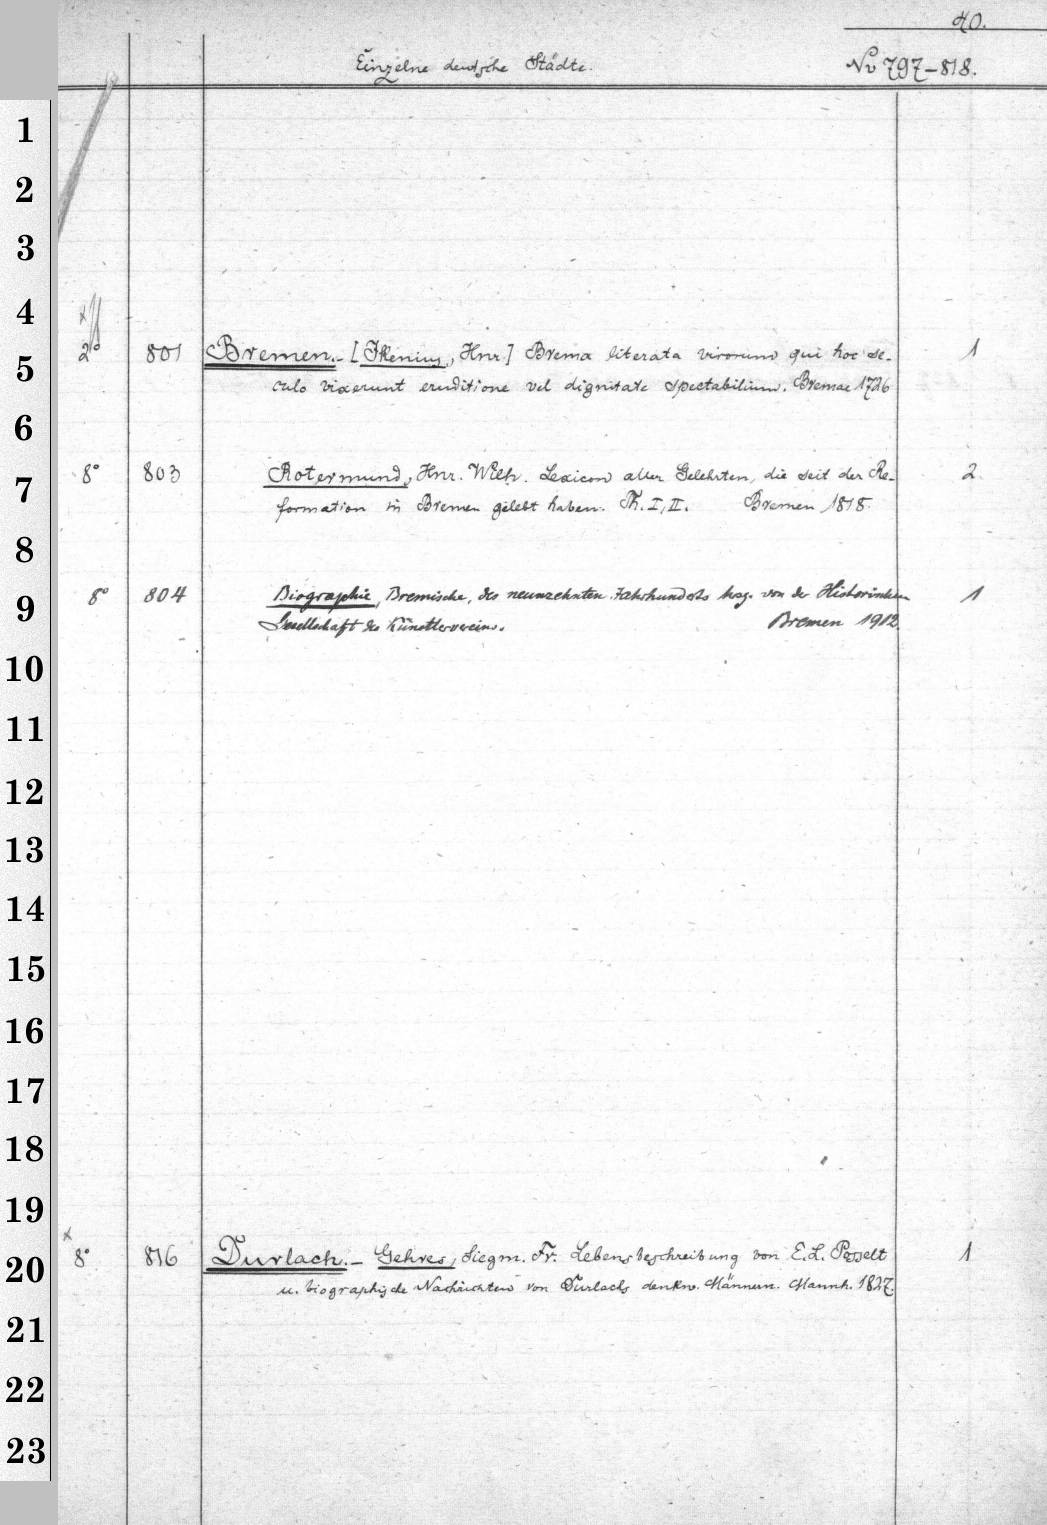 40.
Einzelne deutsche Städte. No 797-818.
1
2
3
4
2° 801 Bremen.- [Ikenius, Hnr.] Brema literata virorum qui hoc se- 1
5
culo vixerunt eruditione vel dignitate spectabilium. Bremae 1726
6
8° 803 Rotermund, Hnr. Wilh. Lexicon aller Gelehrten, die seit der Re- 2.
7
formation in Bremen gelebt haben. Th. I, II. Bremen 1818.
8
8° 804 Biographie, Bremische, des neunzehnten Jahrhunderts hrsg. von der Historischen 1
9
Gesellschaft des Künstlervereins. Bremen 1912.
10
11
12
13
14
15
16
17
18
19
8° 816 Durlach.- Gehres, Siegm. Fr. Lebensbeschreibung von E. L. Posselt 1
20
u. biographische Nachrichten von Durlachs denkw. Männern. Mannh. 1827.
21
22
23